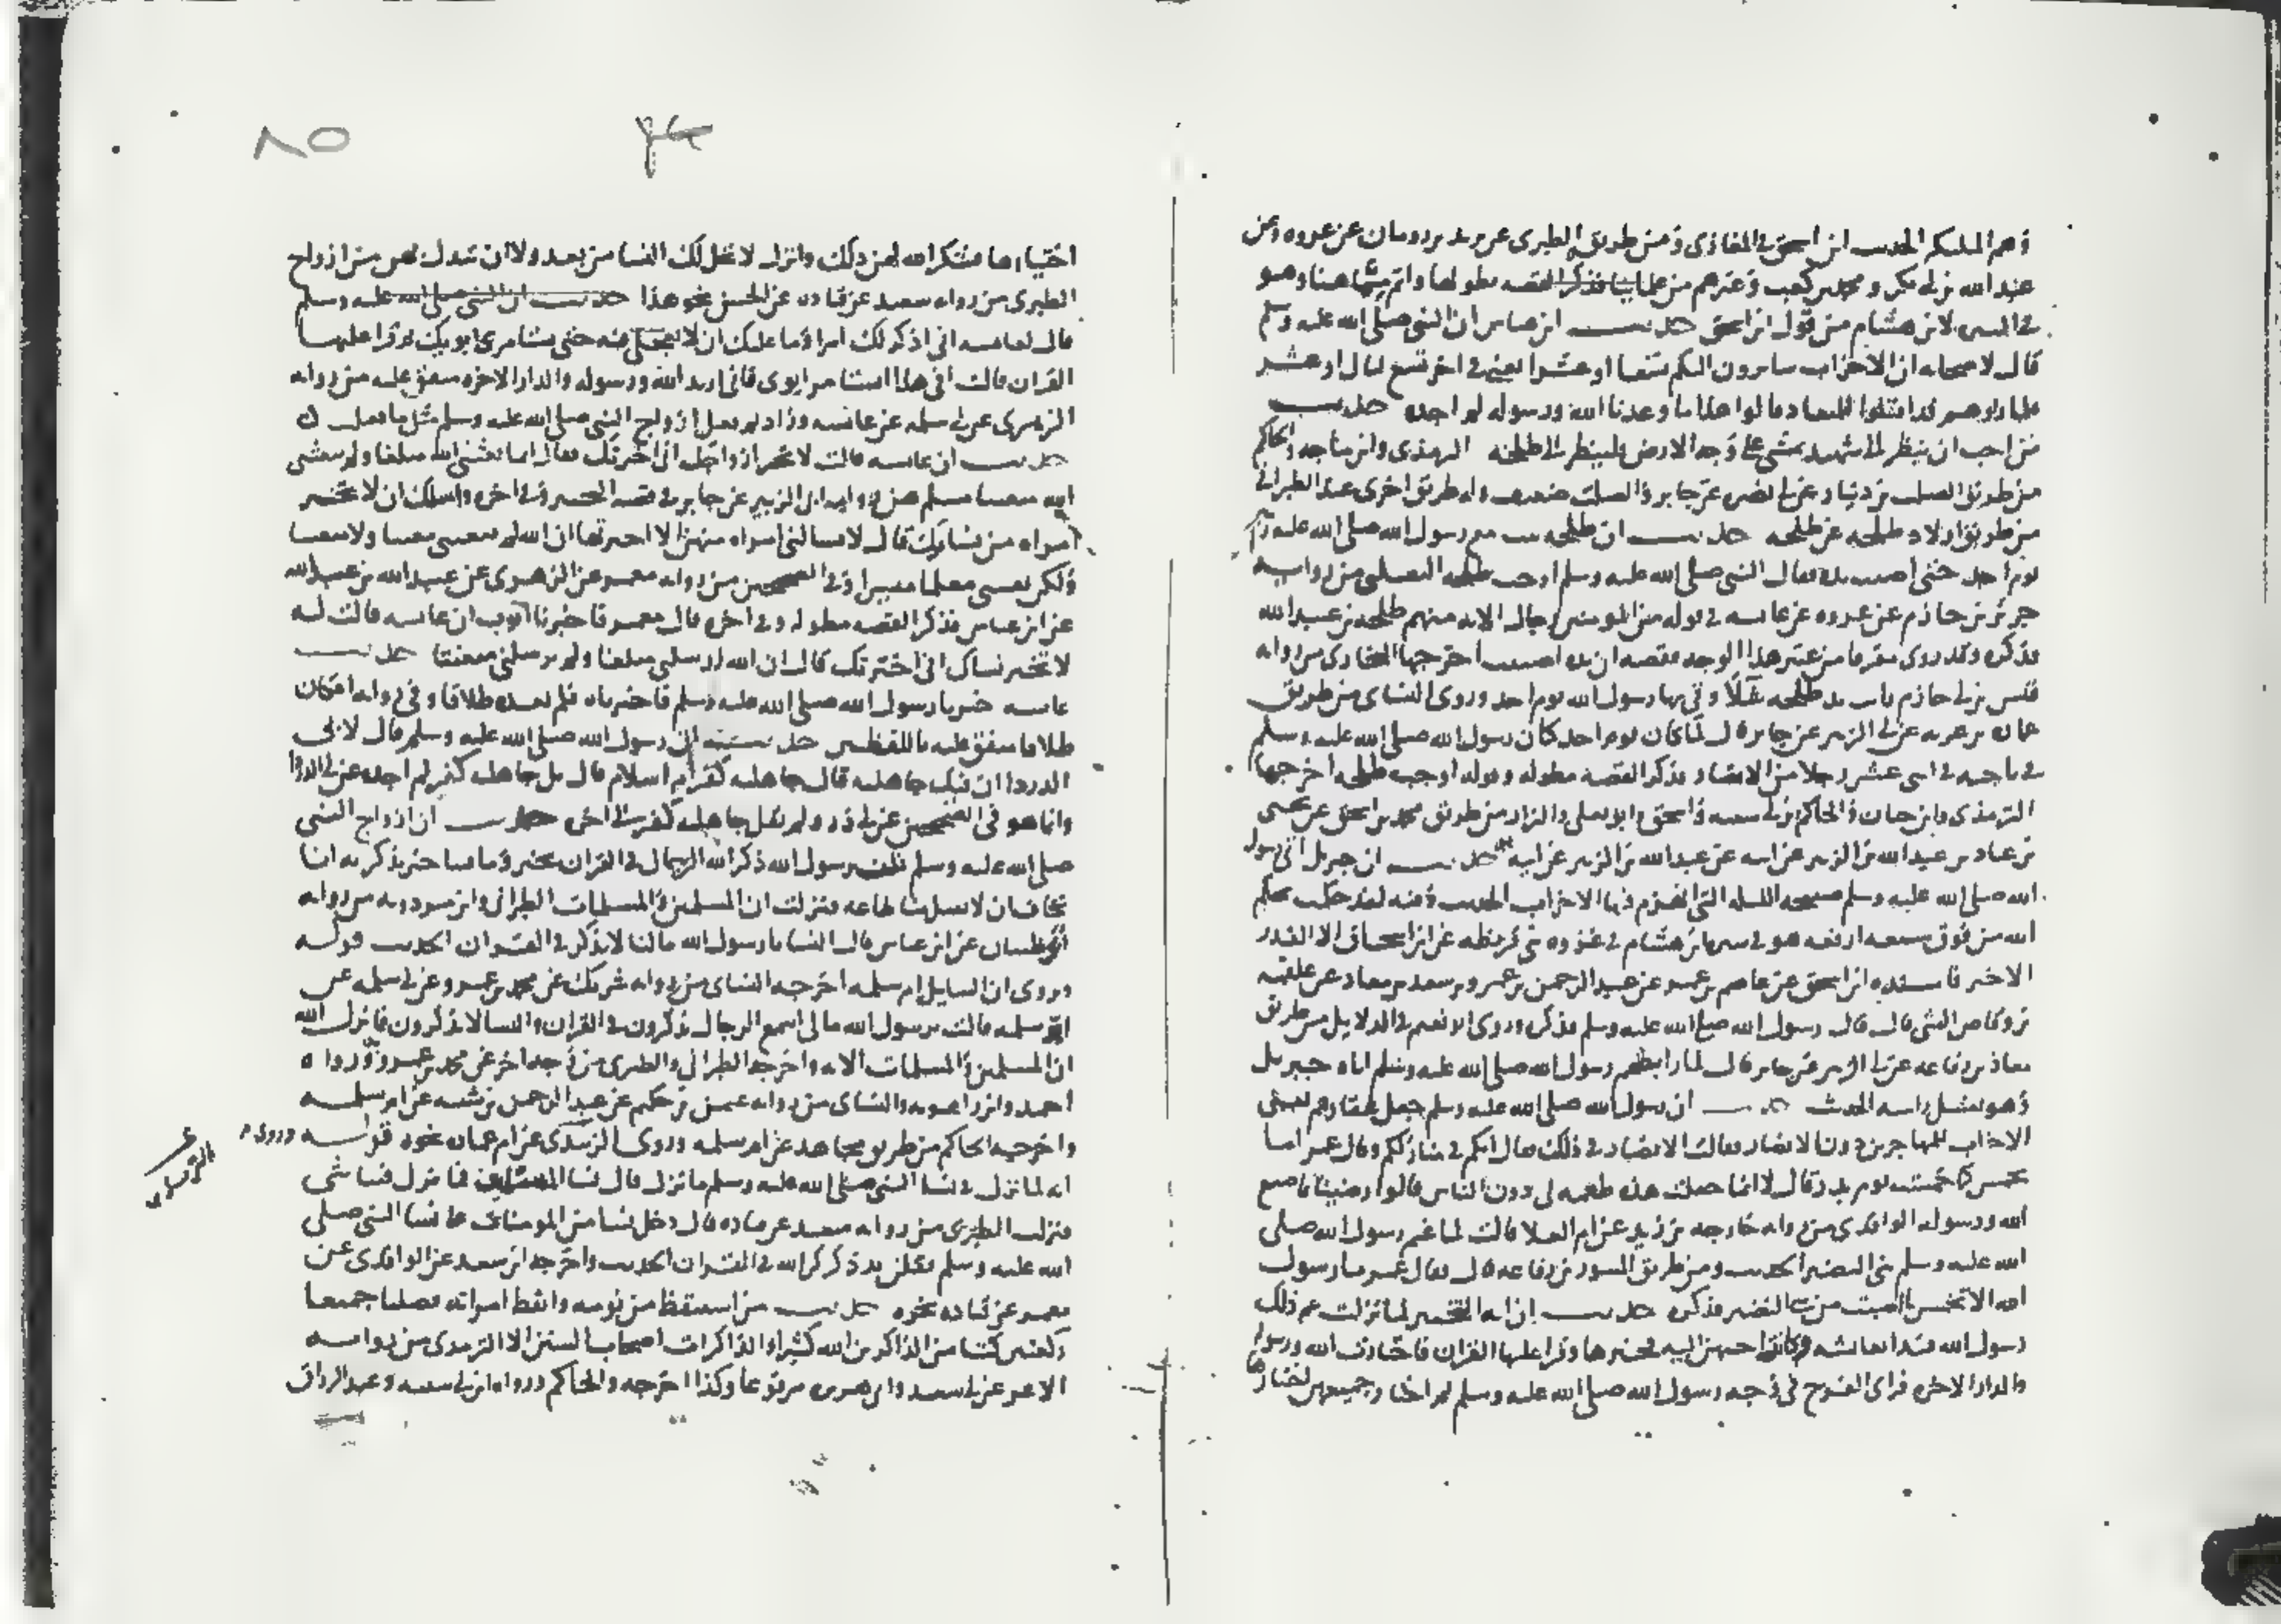 عبد الله بن أبي بكر ومحمد بن كعب وغيرهم من علمائنا فذكر القصة بطولها وأتم مما هنا وهو
لابن هشام من قول ابن إسحق حديث ابن عباس أن النبي صلى الله عليه وسلم
قال لأصحابه إن الأحزاب سائرون إليكم تسعا أو عشرا يعني في آخر تسع ليال أو عشر
فلما رأوهم قد أقبلوا للميعاد قالوا هذا ما وعدنا الله ورسوله لم أجده حديث
من أحب أن ينظر إلى شهيد يمشي على وجه الأرض فلينظر إلى طلحة الترمذي وابن ماجه والحاكم
من طريق الصلت بن دينار عن أبي نضرة عن جابر والصلت ضعيف وله طريق أخرى عند الطبراني
من طريق أولاد طلحة عن طلحة حديث أن طلحة ثبت مع رسول الله صلى الله عليه وسلم
يوم أحد حتى أصيبت يده فقال النبي صلى الله عليه وسلم أوجب طلحة الثعلبي من رواية
جرير بن حازم عن عروة عن عائشة في قوله من المؤمنين رجال الآية منهم طلحة بن عبيد الله
فذكره وقد روي مفرقا من غير هذا الوجه فقصة أن يده أصيبت أخرجها البخاري من رواية
قيس بن أبي حازم رأيت يد طلحة شلاء وقى بها رسول الله يوم أحد وروى النسائي من طريق
عن أبي الزبير عن جابر قال لما كان يوم أحد كان رسول الله صلى الله عليه وسلم
في ناحية في اثني عشر رجلا من الأنصار فذكر القصة مطولة وقوله أوجب طلحة أخرجها
الترمذي وابن حبان والحاكم وابن أبي شيبة وإسحق وأبو يعلى والبزار من طريق محمد بن إسحق عن يحيى
بن عباد بن عبد الله بن الزبير عن أبيه عن عبد الله بن الزبير عن أبيه حديث أن جبريل أتى رسول
الله صلى الله عليه وسلم صبيحة الليلة التي انهزم فيها الأحزاب الحديث وفيه لقد حكمت بحكم
الله من فوق سبعة أرقعة هو في سيرة ابن هشام في غزوة بني قريظة عن ابن إسحاق إلا القدر
الأخير فأسنده ابن إسحق عن عاصم بن عمر عن عبد الرحمن بن عمرو بن سعد بن معاذ عن علقمة
بن وقاص الليثي قال قال رسول الله صلى الله عليه وسلم فذكره وروى أبو نعيم في الدلائل من طريق
معاذ بن رفاعة عن أبي الزبير عن جابر قال لما رسول الله صلى الله عليه وسلم أتاه جبريل
وهو يغسل رأسه الحديث حديث أن رسول الله صلى الله عليه وسلم جعل عقارهم يعني
الأحزاب للمهاجرين دون الأنصار فقالت الأنصار في ذلك فقال إنكم في منازلكم وقال عمر أما
تخمس كما خمست يوم بدر قال لا إنما جعلت هذه طعمة لي دون الناس قالوا رضينا بما صنع
الله ورسوله الواقدي من رواية خارجة بن زيد عن أم العلا قالت لما غنم رسول الله صلى
الله عليه وسلم بني النضير الحديث ومن طريق المسور بن رفاعة قال فقال عمر يا رسول
الله ألا تخمس ما أصبت من بني النضير فذكره حديث أن آية التخيير لما نزلت عرض ذلك
رسول الله فبدأ بعائشة وكانت أحبهن إليه فخيرها وقرأ عليها القرآن فاختارت الله ورسوله
والدار الآخرة فرؤي الفرح في وجه رسول الله صلى الله عليه وسلم ثم اختار جميعهن اختيارها
٨٥
اختيارها فشكر الله لهن ذلك وأنزل لا يحل لك النساء من بعد ولا أن تبدل بهن من أزواج
الطبري من رواية سعيد عن قتادة عن الحسن نحو هذا حديث أن النبي صلى الله عليه وسلم
قال لعائشة إني أذكر لك أمرا وما عليك أن لا تعجلي فيه حتى تستأمري أبويك ثم قرأ عليها
القرآن قالت أفي هذا أستأمر أبوي فإني أريد الله ورسوله والدار الآخرة متفق عليه من رواية
الزهري عن أبي سلمة عن عائشة وزاد ثم فعل أزواج النبي صلى الله عليه وسلم مثل ما فعلت
حديث أن عائشة قالت لا تخبر أزواجك أني اخترتك فقال إنما بعثني الله مبلغا ولم يبعثني
متعنتا مسلم من رواية أبي الزبير عن جابر في قصة التخيير وفي آخره وأسألك أن لا تخبر
امرأة من نسائك قال لا تسألني امرأة منهن إلا أخبرتها إن الله لم يبعثني معنتا ولا متعنتا
ولكن بعثني معلما ميسرا وفي الصحيحين من رواية معمر عن الزهري عن عبيد الله بن عبد الله
عن ابن عباس فذكر القصة مطولة وفي آخره قال معمر فأخبرنا أيوب أن عائشة قالت له
لا تخبر نساءك أني اخترتك قال إن الله أرسلني مبلغا ولم يرسلني متعنتا حديث
عائشة خيرنا رسول الله صلى الله عليه وسلم فاخترناه فلم يعده طلاقا وفي رواية أفكان
طلاقا متفق عليه باللفظين حديث أن رسول الله صلى الله عليه وسلم قال لأبي
الدرداء إن فيك جاهلية قال جاهلية كفر أم إسلام قال بل جاهلية كفر لم أجده عن أبي الدرداء
وإنما هو في الصحيحين عن أبي ذر ولم يقل جاهلية كفر إلى آخره حديث أن أزواج النبي
صلى الله عليه وسلم قلن يا رسول الله ذكر الله الرجال في القرآن بخير وما فينا خير نذكر به إنا
نخاف أن لا تقبل منا طاعة فنزلت إن المسلمين والمسلمات الطبراني وابن مردويه من رواية
أبي ظبيان عن ابن عباس قال قال النساء يا رسول الله ما لنا لا نذكر في القرآن الحديث قوله
وروي أن السائل أم سلمة أخرجه النسائي من رواية شريك عن محمد بن عمرو عن أبي سلمة عن
أم سلمة قالت يا رسول الله ما لي أسمع الرجال يذكرون في القرآن والنساء لا يذكرون فأنزل الله
إن المسلمين والمسلمات الآية وأخرجه الطبراني والطبري من وجه آخر عن محمد بن عمرو ورواه
أحمد وابن راهويه والنسائي من رواية عثمان بن حكيم عن عبد الرحمن بن شيبة عن أم سلمة
وأخرجه الحاكم من طريق مجاهد عن أم سلمة وروى الترمذي عن أم عمارة نحوه قوله وروي
أنه لما نزل في نساء النبي صلى الله عليه وسلم ما نزل قال نساء المسلمين فما نزل فينا شيء
فنزلت الطبري من رواية سعيد عن قتادة قال دخل نساء من المؤمنات على نساء النبي صلى
الله عليه وسلم فقلن قد ذكركن الله في القرآن الحديث وأخرجه ابن سعد عن الواقدي عن
معمر عن قتادة نحوه حديث من استيقظ من نومه وأيقظ امرأته فصليا جميعا
ركعتين كتبا من الذاكرين الله كثيرا والذاكرات أصحاب السنن إلا الترمذي من رواية
الأغر عن أبي سعيد وأبي هريرة مرفوعا وكذا أخرجه والحاكم ورواه ابن أبي شيبة وعبد الرزاق